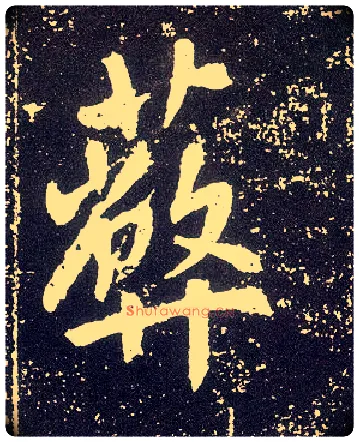 弊
Shufawang.CN